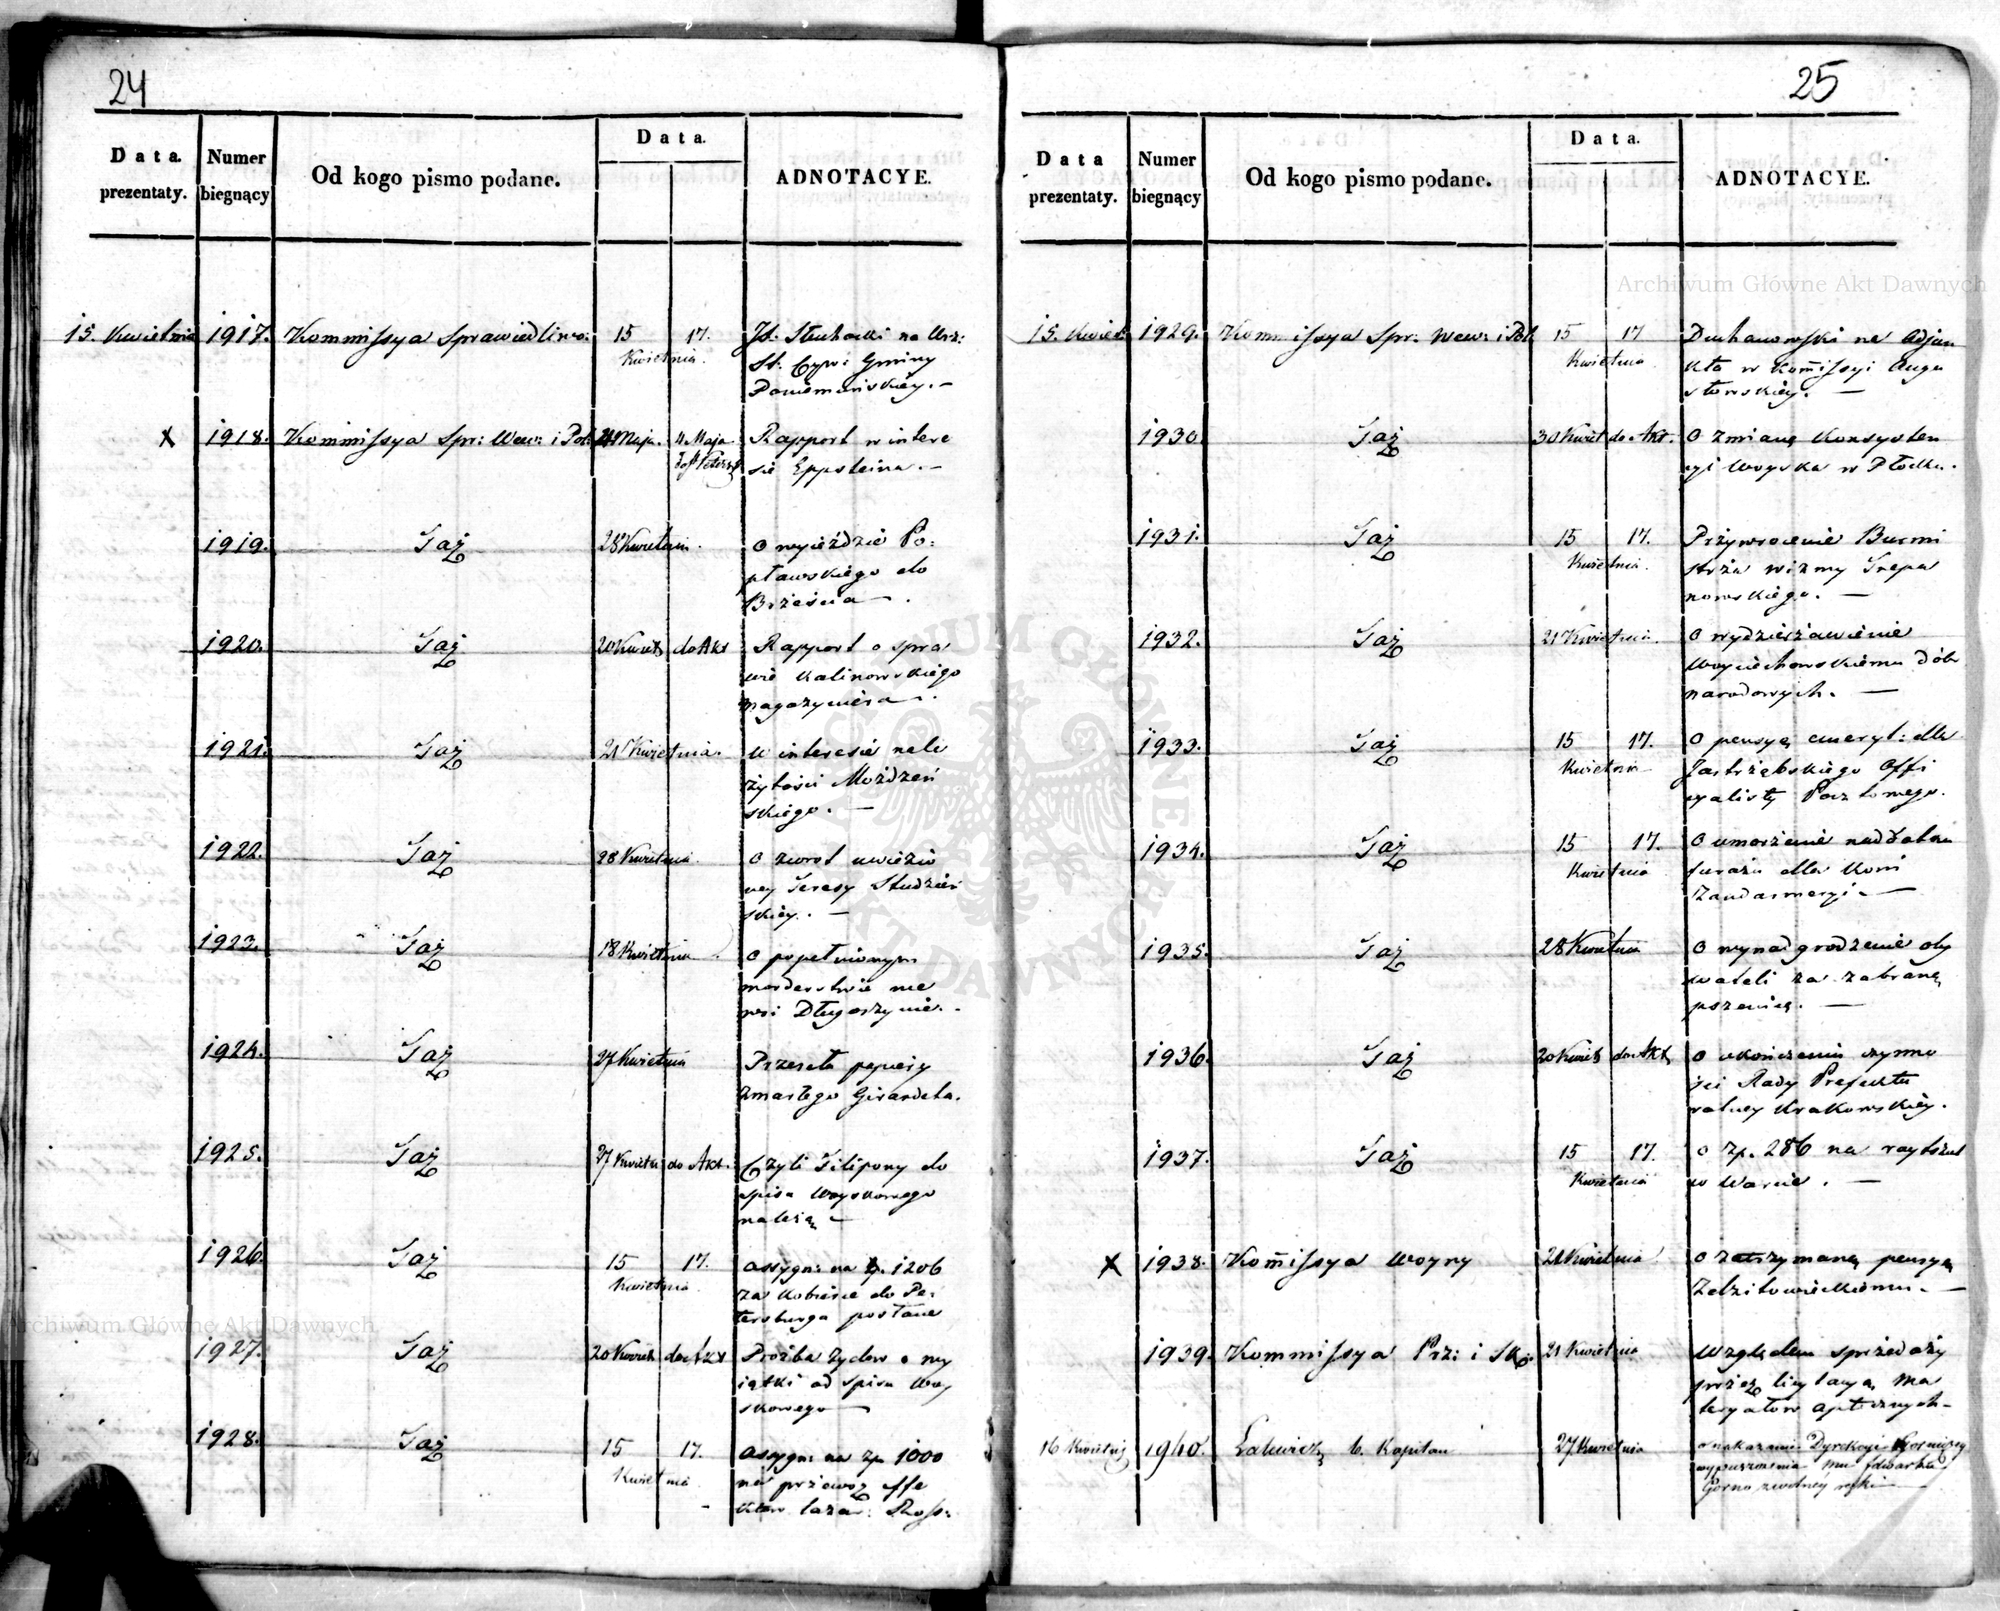 24
Data prezentaty. Numer biegnący Od kogo pismo podane. Data. ADNOTACYE.
15. Kwietnia 1917. Kommissya Sprawiedliwo: 15 17. Kwietnia. Jb. Słuchocki na Urz:
St. Cywi: Gminy
Poniemuńskiéy. —
X 1918. Kommissya Spr: Wew: i Pol: 4 Maja. 4 Maja Rapport w intere
sie Eppsteina. —
1919. Taż 28 Kwietnia. O wyieździe Po:
pławskiego do
Brześcia —.
1920. Taż 20 Kwiet: do Akt Rapport o spra
wie Kalinowskiego
magazyniera.
1921. Taż 21 Kwietnia. W interesie nale
żytości Możdzeń
skiego. —
1922. Taż 28 Kwietnia O zwrot uwięzio
ney Teresy Studzień
skiéy. —
1923. Taż 18 Kwietnia O popełnionym
morderstwie we
wsi Długoszynie. -
1924. Taż 27 Kwietnia Przesyła papiery
zmarłego Girardeta.
1925. Taż 27 Kwietn: do Akt. Czyli Filipony do
spisu Woyskowego
należą —
1926. Taż 15 17. Kwietnia assygn: na zp. 1206
za kobierce do Pe:
tersburga posłane
1927. Taż 20 Kwiet: do Akt Prośba żydów o wy
iątki od spisu Woy
skowego —
1928. Taż 15 17. Kwietnia assygn: na zp 1000
na przewoz effe
któw lazar: Ross:
25
Data prezentaty. Numer biegnący Od kogo pismo podane. Data. ADNOTACYE.
15. Kwiet: 1929. Kommissya Spr: Wew: i Pol: 15 17 Kwietnia Duchanowski na Adjun
kta w Kommissyi Augu
stowskiéy. —
1930. Taż 30 Kwiet do Akt. O zmianę Konsysten
cyi Woyska w Płocku.
1931. Taż 15 17. Kwietnia. Przywrocenie Burmi
strza Wizny Szepa
nowskiego. —
1932. Taż 21 Kwietnia. O wydzierżawienie
Woyciechowskiemu dóbr
narodowych. —
1933. Taż 15 17. Kwietnia O pensyą emeryt: dla
Jastrzębskiego Offi
cyalisty Pocztowego.
1934. Taż 15 17. Kwietnia O umorzenie nadebran:
furażu dla koni
Żandarmeryi. —
1935. Taż 28 Kwietnia O wynadgrodzenie oby
wateli za zabraną
pszenicę. —
1936. Taż 20 Kwiet: do Akt O ukończeniu czynno
ści Rady Prefektu
ralney Krakowskiéy.
1937. Taż 15 17. Kwietnia O zp. 286 na raytszul
w Warcie. —
X 1938. Kommissya Woyny 21 Kwietnia O zatrzymaną pensyą
Zdzitowieckiemu. —
1939. Kommissya Prz: i Sk: 21 Kwietnia Względem sprzedaży
przez licytacyą ma
teryałów aptecznych —
16 Kwietnia 1940. b. Kapitan 27 Kwietnia o nakazanie Dyrekcyi
wypuszczenia mu folwarku
Górno z wolnéy ręki —
Archiwum Główne Akt Dawnych
Archiwum Główne Akt Dawnych
ARCHIWUM GŁÓWNE AKT DAWNYCH